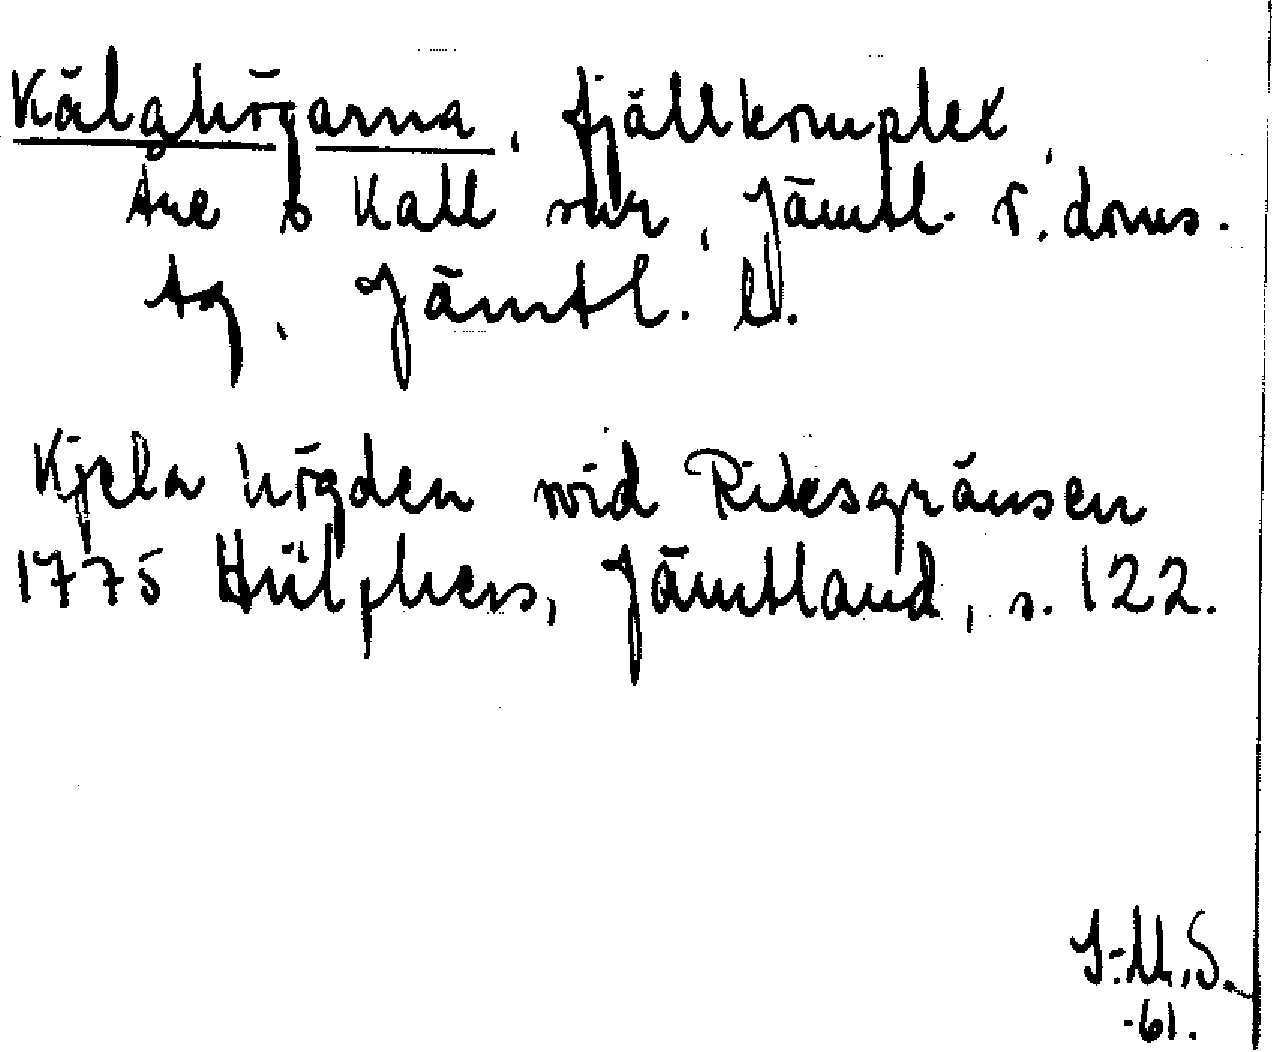 Kälahögarna, fjällkomplex,
Åre o Kall snr, Jämtl. v. doms.
tg, Jämtl. l.
Kjela högden wid Riksgränsen
1775 Hülphers, Jämtland, s. 122.
I-M.S.
-61.